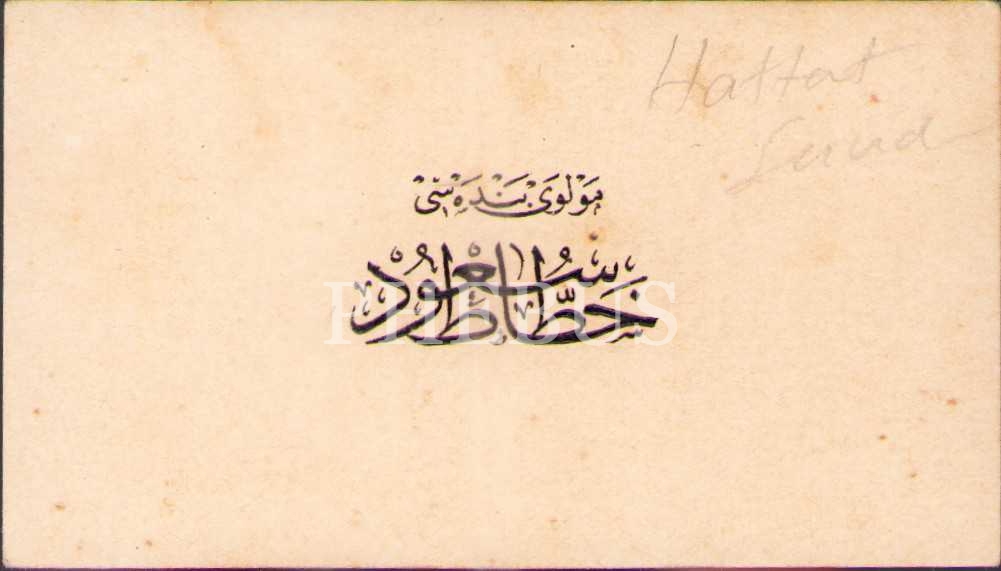 Hattat
Suud
مولوی بنده سی
خطاط سعود
PHEBUS